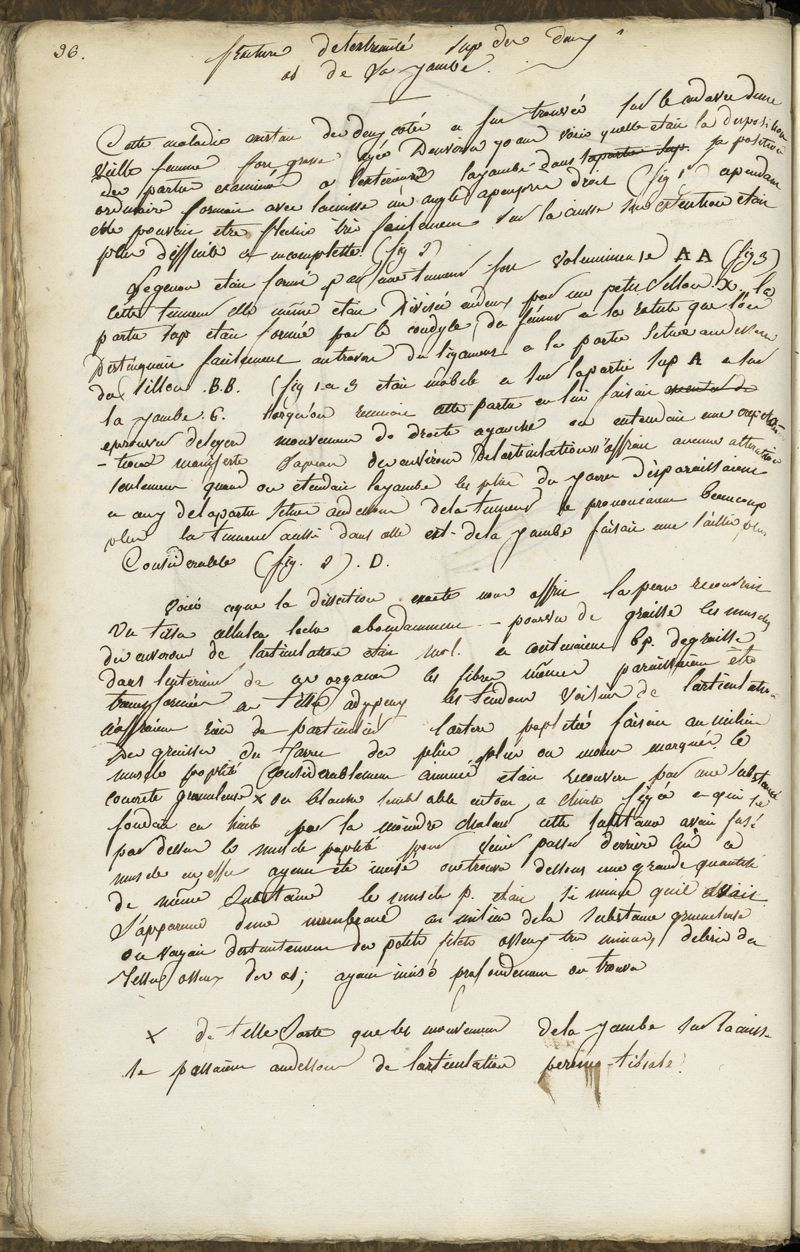 96.
fracture delextremité sup des deux
os de la jambe.
Cette maladie existan des deux cotés a ete trouvée sur le cadavre dune
vieille femme fort grasse agée Deverona yoans voici quelle etait la disposition
des parties examinées a lexterieur la jambe dans sa position
ordinaire formait avec lacuisse un angle apeupres droit (fig 1) cependant
elle pouvait etre flechie tres facilement sur la cuisse son extention etait
plus difficile et incomplette. (fig 2)
Le genou etait formé par une tumeur fort volumineuse A A (fig 3)
cette tumeur elle même etait divisée en deux par un petit sillon X. la
partie sup etait formée par le condyle du fémur et la rotule que l'on
Distinguait facilement au travers du ligament et la partie située audessous
du sillon B.B. (fig 1 et 3 etait mobile et sur la partie sup A et sur
la jambe C. lorsqu'on remuait cette partie en lui faisait
eprouver de legers mouvemens de droite a gauche on entendait une crepita-
-tion manifeste la peau des environs de larticulation n'offrait aucune alteration
seulement quand on etendait la jambe les plis du jarret disparaissaient
et ceux de la partie située audessous de la tumeur se prononcaient beaucoup
plus la tumeur aussi dans cette ext. de la jambe faisait une saillie plus
Considerable (fig. 2). D.
Voici ce que la dissection exacte nous offrit la peau recouvrait
un tissu cellulaire lache abondamment - pourvu de graisse les muscles
des environs de larticulation etait mol. et contenaient bp. de graisse
dans linterieur de ces organes les fibres mêmes paraissaient être
transformées en tissu adypeux les tendons voisins de larticulation
n'offraient rien de particulier lartere poplitée faisait au milieu
des graisses du jarret des plis plus ou moins marqués le
muscle poplité considerablement aminci etait recouvert par une substance
concrete grumeleuse x ou blanche semblable en tout a figée et qui se
fondait en huile par la moindre chaleur cette substance avait fusé
par dessus le muscle poplité pour venir passer derriere lui ce
muscle en effet ayant été incisé on trouva dessous une grande quantité
de même substance le muscle p. etait si mince quil avait
l'apparence dune membrane au milieu de la substance grumeleuse
on voyait distinctement des petits filets osseux tres minces, debris du
tissu osseux des os; ayant incisé profondement on trouva
x de telle sorte que les mouvemens de la jambe sur la cuisse
se passaient audessous de larticulation peroneo-tibiale.